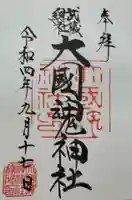 奉拝
武蔵
総社
大國魂神社
令和四年九月十七日